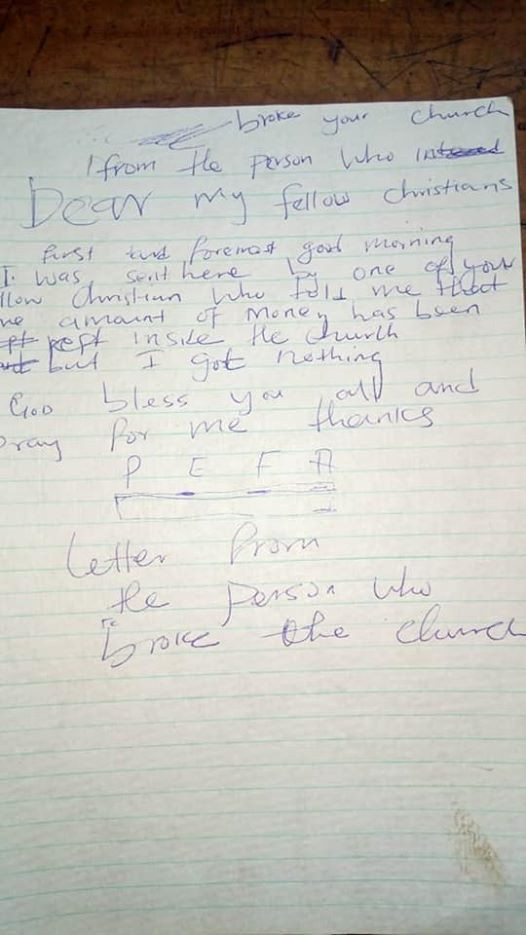 broke your church
from the person who
Dear my fellow christians
first and foremost good morning
I was sent here by one of your
llow Christian who told me that
me amount of money has been
kept inside the church
but I got nothing
GOD bless you all and
pray for me thanks
P E F A
Letter from
the person who
broke the church